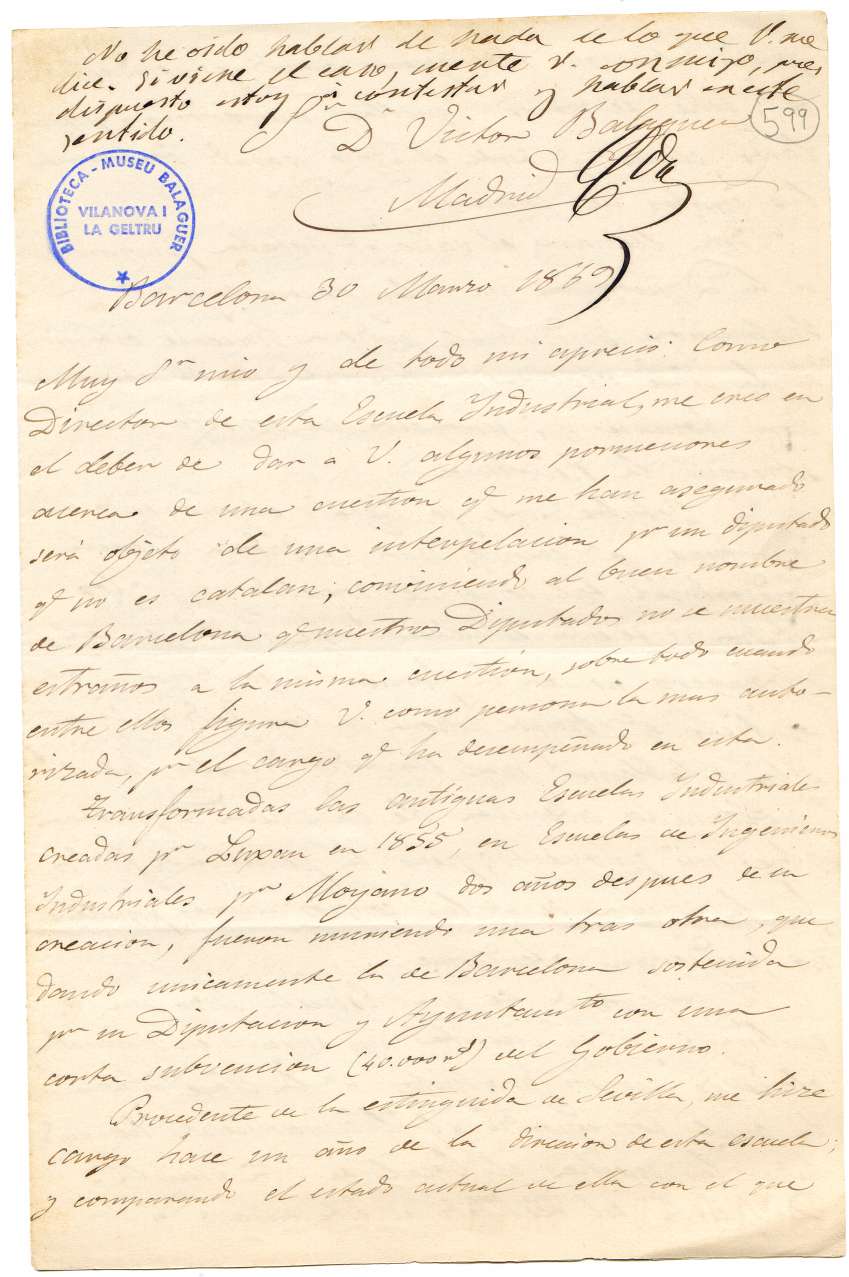 No he oido hablar de nada de lo que V. me
dice. Si viene el caso, cuente V. conmigo, pues
dispuesto estoy á contestar y hablar en este
sentido.
599
Sr. Dn Victor Balaguer
Madrid
BIBLIOTECA - MUSEU BALAGUER
VILANOVA I
LA GELTRU
Barcelona 30 Marzo 1869
Muy Sr mio y de todo mi aprecio: Como
Director de esta Escuela Industrial, me creo en
el deber de dar a V. algunos pormenores
acerca de una cuestion qe me han asegurado
será objeto de una interpelacion pr un diputado
qe no es catalan; conviniendo al buen nombre
de Barcelona qe nuestros Diputados no se muestren
estraños a la misma cuestión, sobre todo cuando
entre ellos figura V. como persona la mas auto-
rizada, pr el cargo qe ha desempeñado en esta.
Transformadas las antiguas Escuelas Industriales
creadas pr Luxan en 1855, en Escuelas de Ingenieros
Industriales pr Moyano dos años despues de su
creacion, fueron muriendo una tras otra, que
dando unicamente la de Barcelona sostenida
pr su Diputacion y Ayuntamto con una
corta subvencion (40.000 rs) del Gobierno.
Procedente de la estinguida de Sevilla, me hize
cargo hace un año de la direccion de esta escuela;
y comparando el estado actual de ella con el que